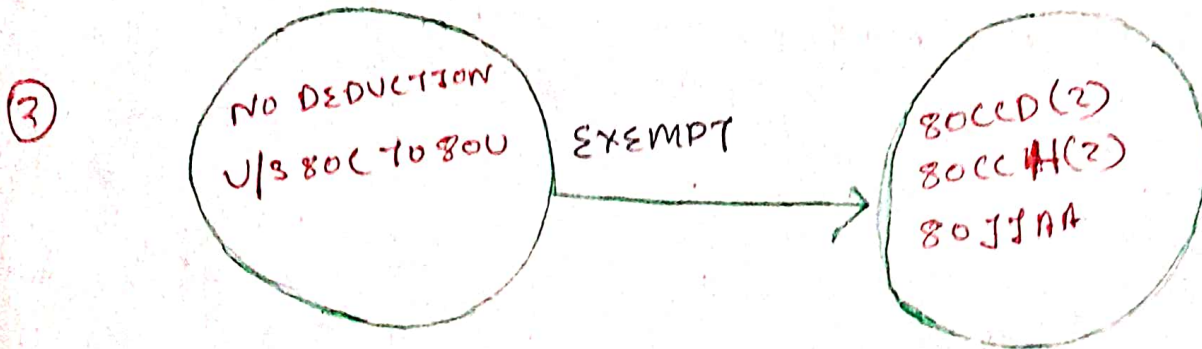 ③
NO DEDUCTION
U/S 80C TO 80U
EXEMPT
80CCD(2)
80CCH(2)
80JJAA